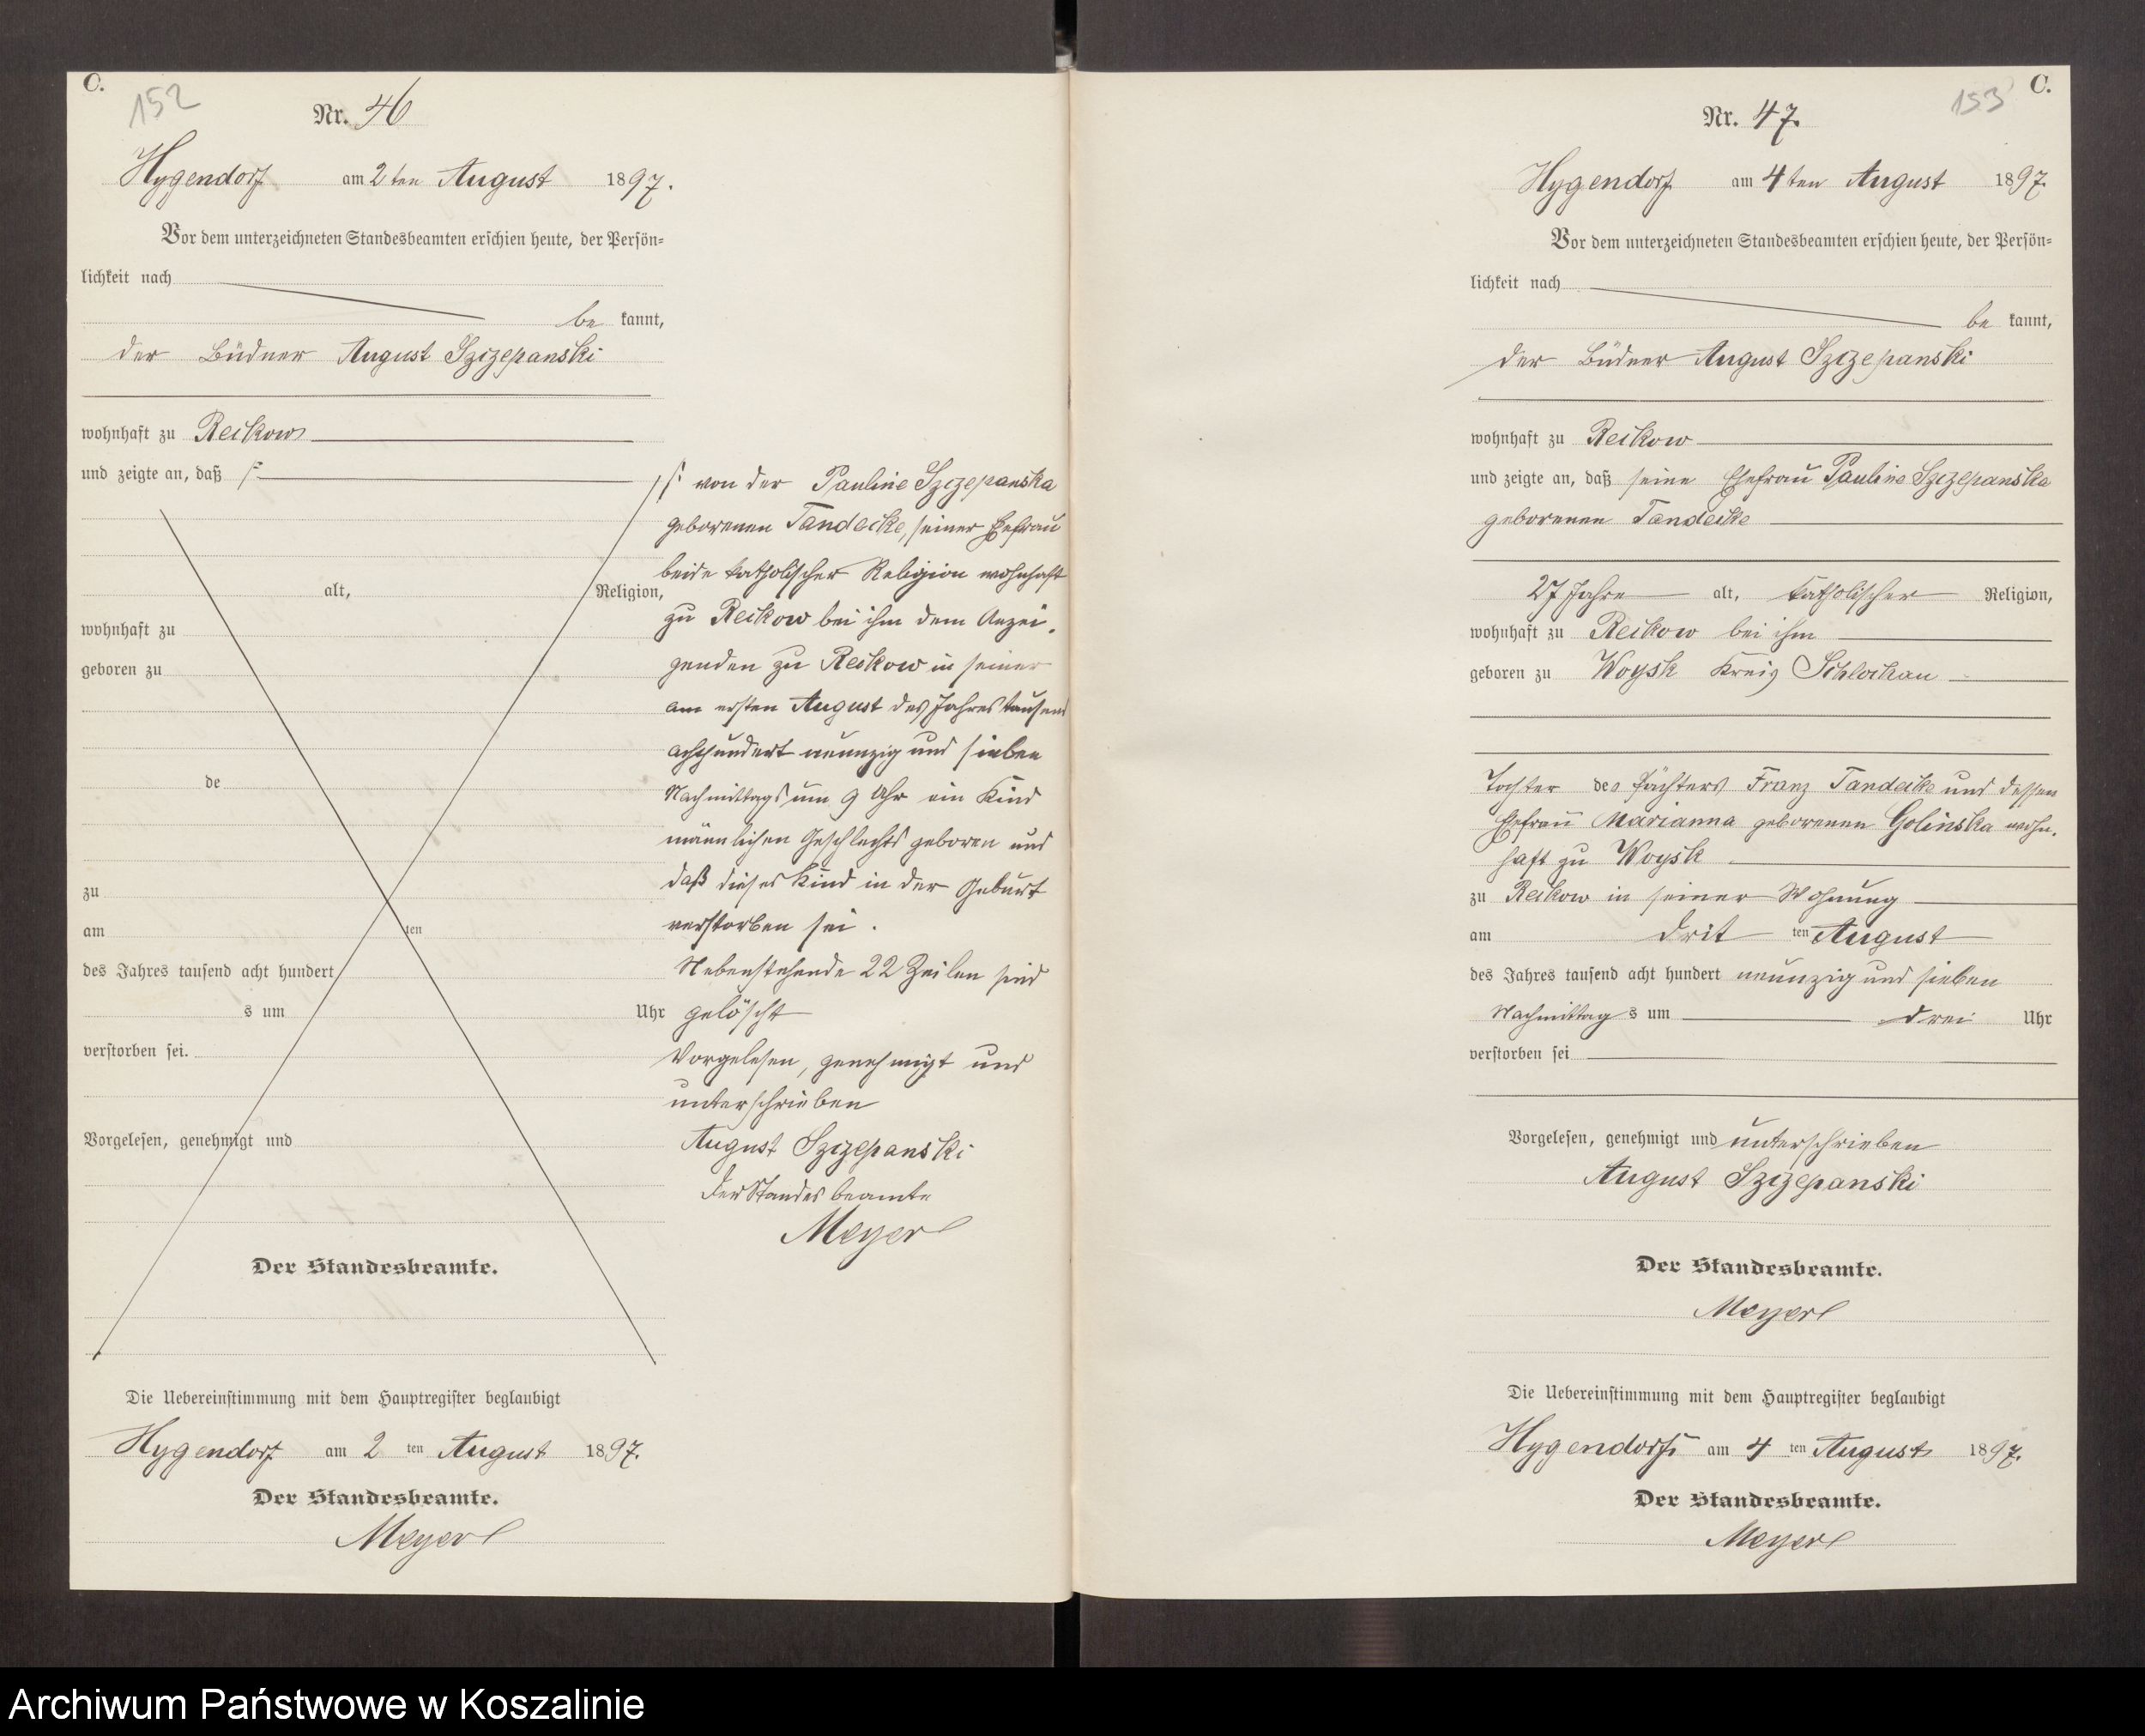 C.
152
Nr. 46
Hygendorf am 2ten August 1897.
Vor dem unterzeichneten Standesbeamten erschien heute, der Persön-
lichkeit nach
be kannt,
der Büdner August Szczepanski
wohnhaft zu Reckow
und zeigte an, daß
alt, Religion,
wohnhaft zu
geboren zu
de
zu
am ten
des Jahres tausend acht hundert
s um Uhr
verstorben sei.
Vorgelesen, genehmigt und
Der Standesbeamte.
von der Pauline Szczepanska
geborenen Tandecke, seiner Ehefrau
beide katholischer Religion wohnhaft
zu Reckow bei ihm dem Anzei-
genden zu Reckow in seiner
am ersten August des Jahres tausend
achthundert neunzig und sieben
Nachmittags um 9 Uhr ein Kind
männlichen Geschlechts geboren und
daß dieses Kind in der Geburt
verstorben sei.
Nebenstehende 22 Zeilen sind
gelöscht
Vorgelesen, genehmigt und
unterschrieben
August Szczepanski
Der Standesbeamte
Meyer
Die Uebereinstimmung mit dem Hauptregister beglaubigt
Hygendorf am 2 ten August 1897.
Der Standesbeamte.
Meyer
C.
153
Nr. 47.
Hygendorf am 4ten August 1897.
Vor dem unterzeichneten Standesbeamten erschien heute, der Persön-
lichkeit nach
be kannt,
der Büdner August Szczepanski
wohnhaft zu Reckow
und zeigte an, daß seine Ehefrau Pauline Szczepanska
geborenen Tandecke
27 Jahre alt, katholischer Religion,
wohnhaft zu Reckow bei ihm
geboren zu Woysk Kreis Schlochau
Tochter des Pächters Franz Tandecke und dessen
Ehefrau Marianna geborenen Golinska wohn-
haft zu Woysk
zu Reckow in seiner Wohnung
am drit ten August
des Jahres tausend acht hundert neunzig und sieben
Nachmittag s um drei Uhr
verstorben sei
Vorgelesen, genehmigt und unterschrieben
August Szczepanski
Der Standesbeamte.
Meyer
Die Uebereinstimmung mit dem Hauptregister beglaubigt
Hygendorf am 4 ten August 1897.
Der Standesbeamte.
Meyer
Archiwum Państwowe w Koszalinie